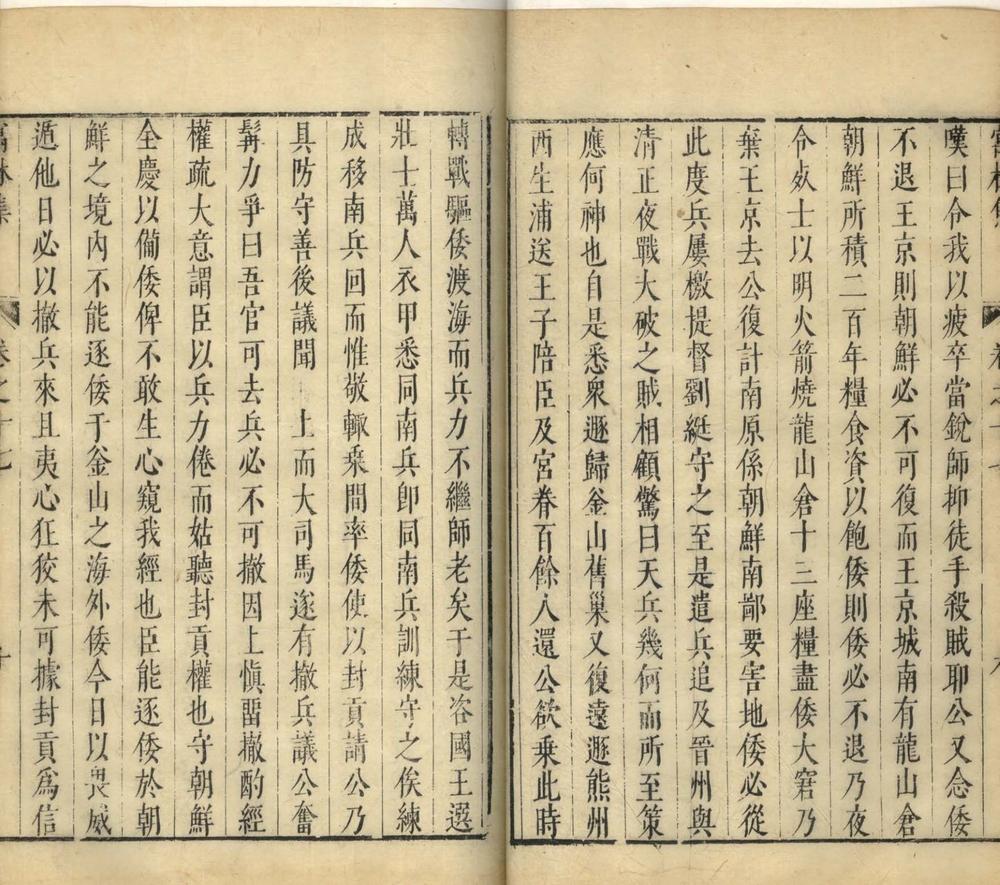 嘆曰令我以疲卒當銳師抑徒手殺賊耶公又念倭
不退王京則朝鮮必不可復而王京城南有龍山倉
朝鮮所積二百年糧食資以飽倭則倭必不退乃夜
令死士以明火箭燒龍山倉十三座糧盡倭大窘乃
棄王京去公復計南原係朝鮮南鄙要害地倭必從
此度兵屢檄提督劉綎守之至是遣兵追及晉州與
清正夜戰大破之賊相顧驚曰天兵幾何而所至策
應何神也自是悉衆遯歸釜山舊巢又復遠遯熊州
西生浦送王子陪臣及宮眷百餘人還公欲乘此時
轉戰驅倭渡海而兵力不繼師老矣于是咨國王選
壯士萬人衣甲悉同南兵卽同南兵訓練守之俟練
成移南兵回而惟敬輙乘間率倭使以封貢請公乃
具防守善後議聞 上而大司馬遂有撤兵議公奮
髯力爭曰吾官可去兵必不可撤因上愼畱撤酌經
權疏大意謂臣以兵力倦而姑聽封貢權也守朝鮮
全慶以僃倭俾不敢生心窺我經也臣能逐倭於朝
鮮之境內不能逐倭于釜山之海外倭今日以畏威
遁他日必以撤兵來且夷心狂狡未可據封貢爲信
寓林集 卷之十七 十